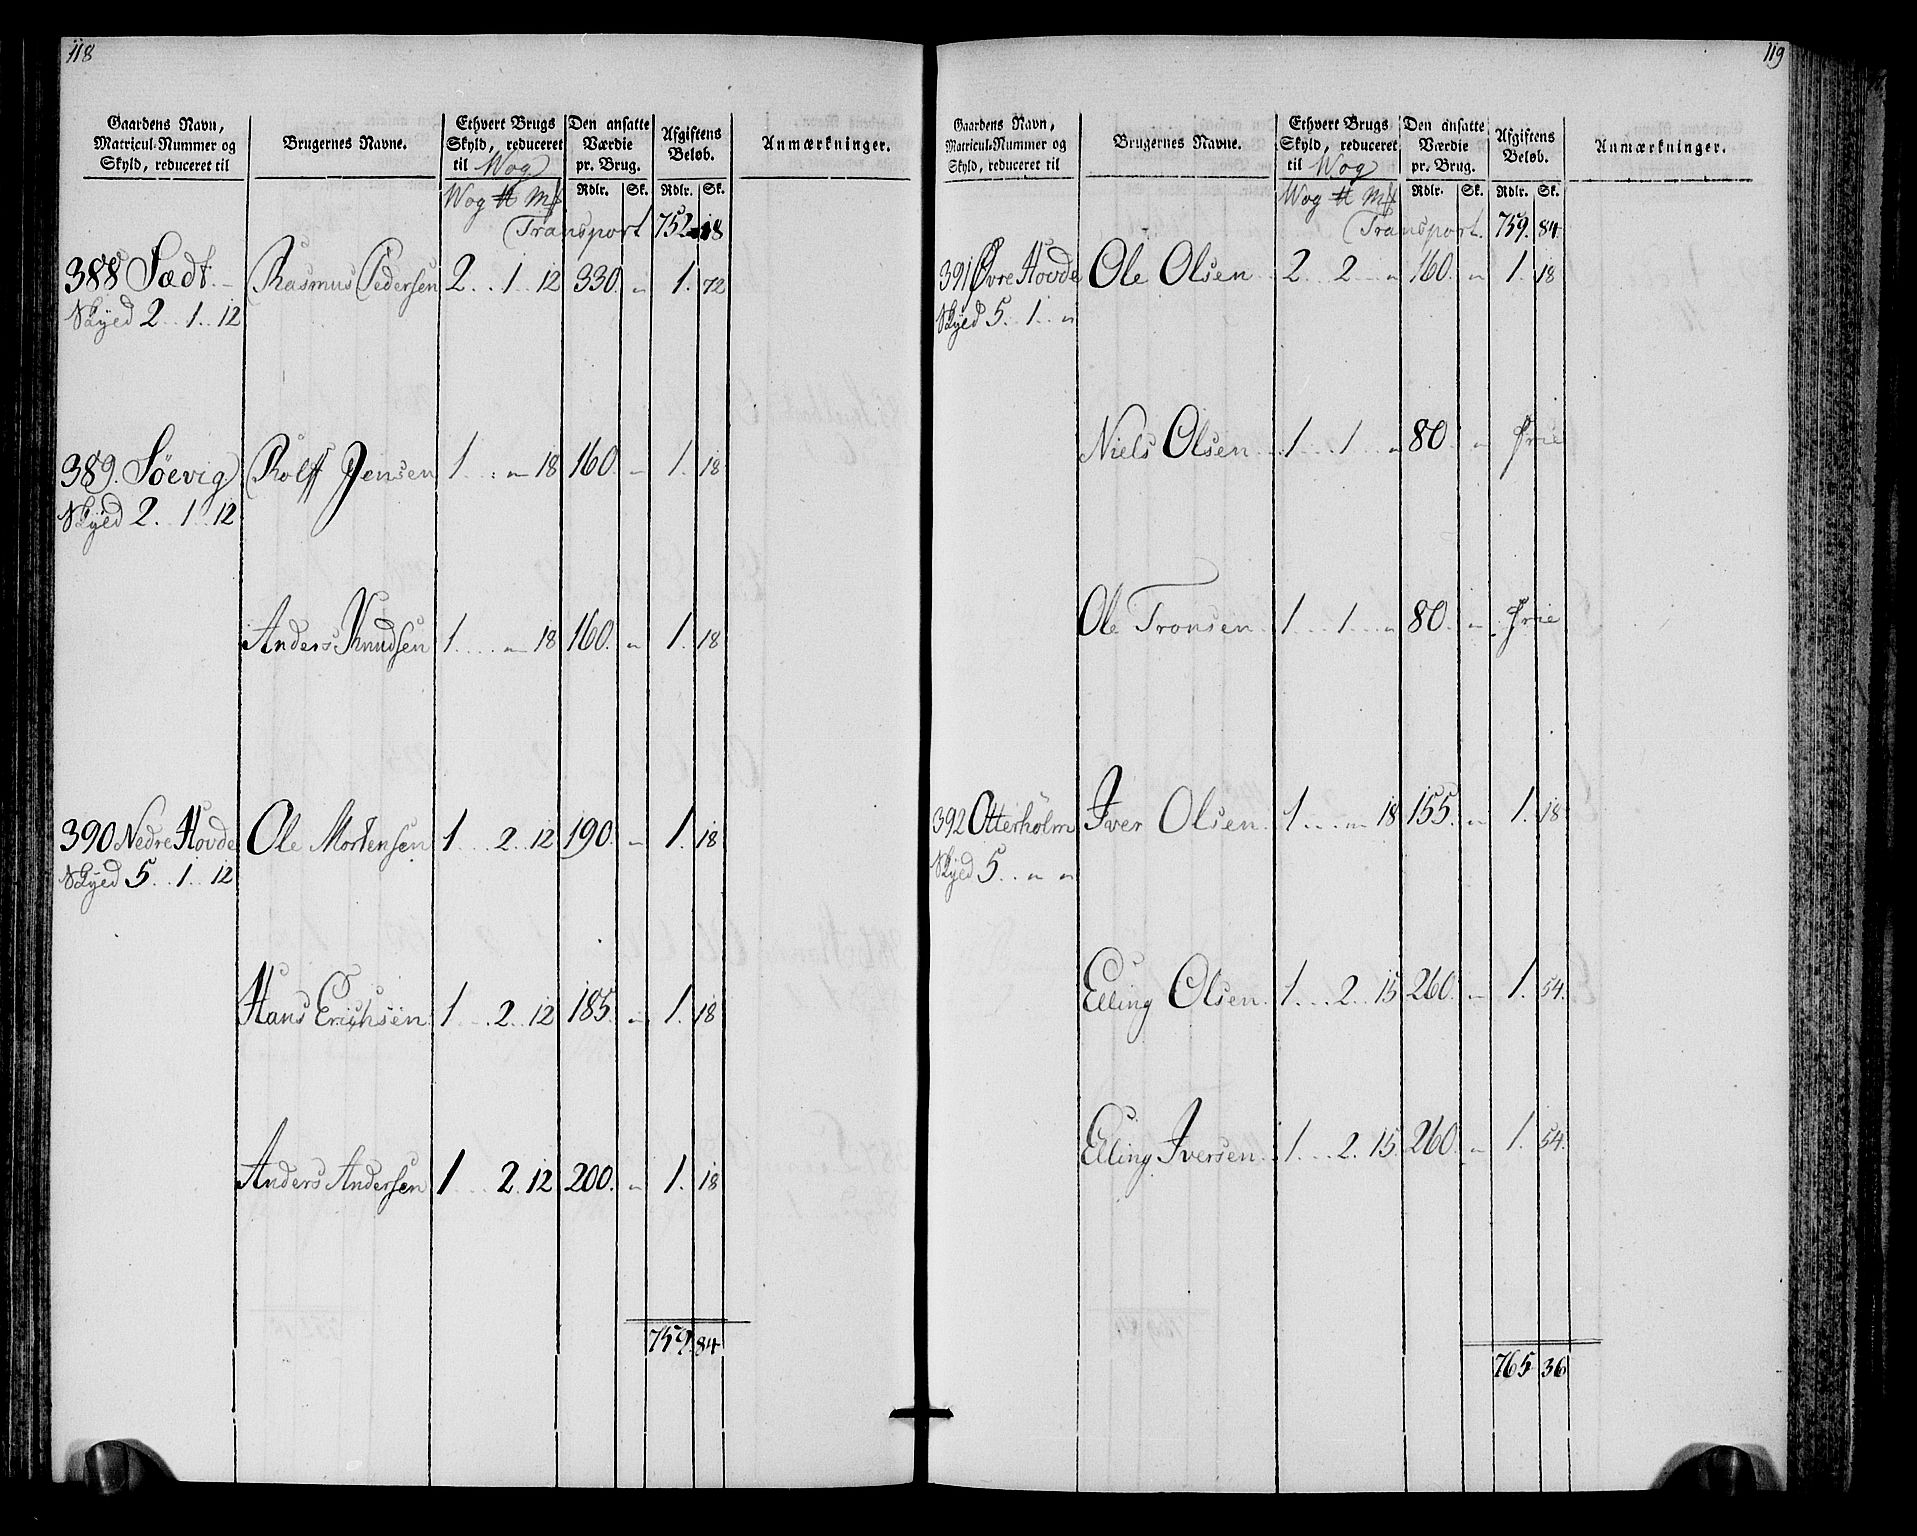 118
Gaardens Navn, Matricul-Nummer og Skyld, reduceret til
Brugernes Navne.
Ethvert Brugs Skyld, reduceret til Wog
Den ansatte Værdie pr. Brug.
Afgiftens Beløb.
Anmærkninger.
Wog ℔ Mk Rdlr. Sk. Rdlr. Sk.
Transport 752. 18
388 Sædt. Rasmus Pedersen 2 .. 1 .. 12 330. " 1. 72
Skyld 2 .. 1 .. 12
389. Söevig Rolff Jensen 1 .. " 18 160. " 1. 18
Skyld 2 .. 1 .. 12
Anders Knudsen 1 .... " 18 160. " 1. 18
390 Nedre Hovde Ole Mortensen 1 .. 2 .. 12 190. " 1. 18
Skyld 5 .. 1 .. 12
Hans Erichsen 1 ... 2 .. 12 185. " 1. 18
Anders Andersen 1 ... 2. 12 200. " 1. 18
759. 84
119
Gaardens Navn, Matricul-Nummer og Skyld, reduceret til
Brugernes Navne.
Ethvert Brugs Skyld, reduceret til Wog
Den ansatte Værdie pr. Brug.
Afgiftens Beløb.
Anmærkninger.
Wog ℔ Mk Rdlr. Sk. Rdlr. Sk.
Transport. 759. 84
391 Øvre Hovde Ole Olsen 2 .. 2 .. " 160. " 1. 18
Skyld 5 .. 1 .. "
Niels Olsen 1 ... 1 .. " 80. " frie
Ole Tronsen 1 ... 1 .. " 80. " frie
392 Otterholm Iver Olsen 1 ... " 18 155. " 1. 18
Skyld 5 .. " "
Elling Olsen 1 ... 2 .. 15 260. " 1. 54.
Elling Iversen 1 ... 2. 15 260. " 1. 54.
765 36